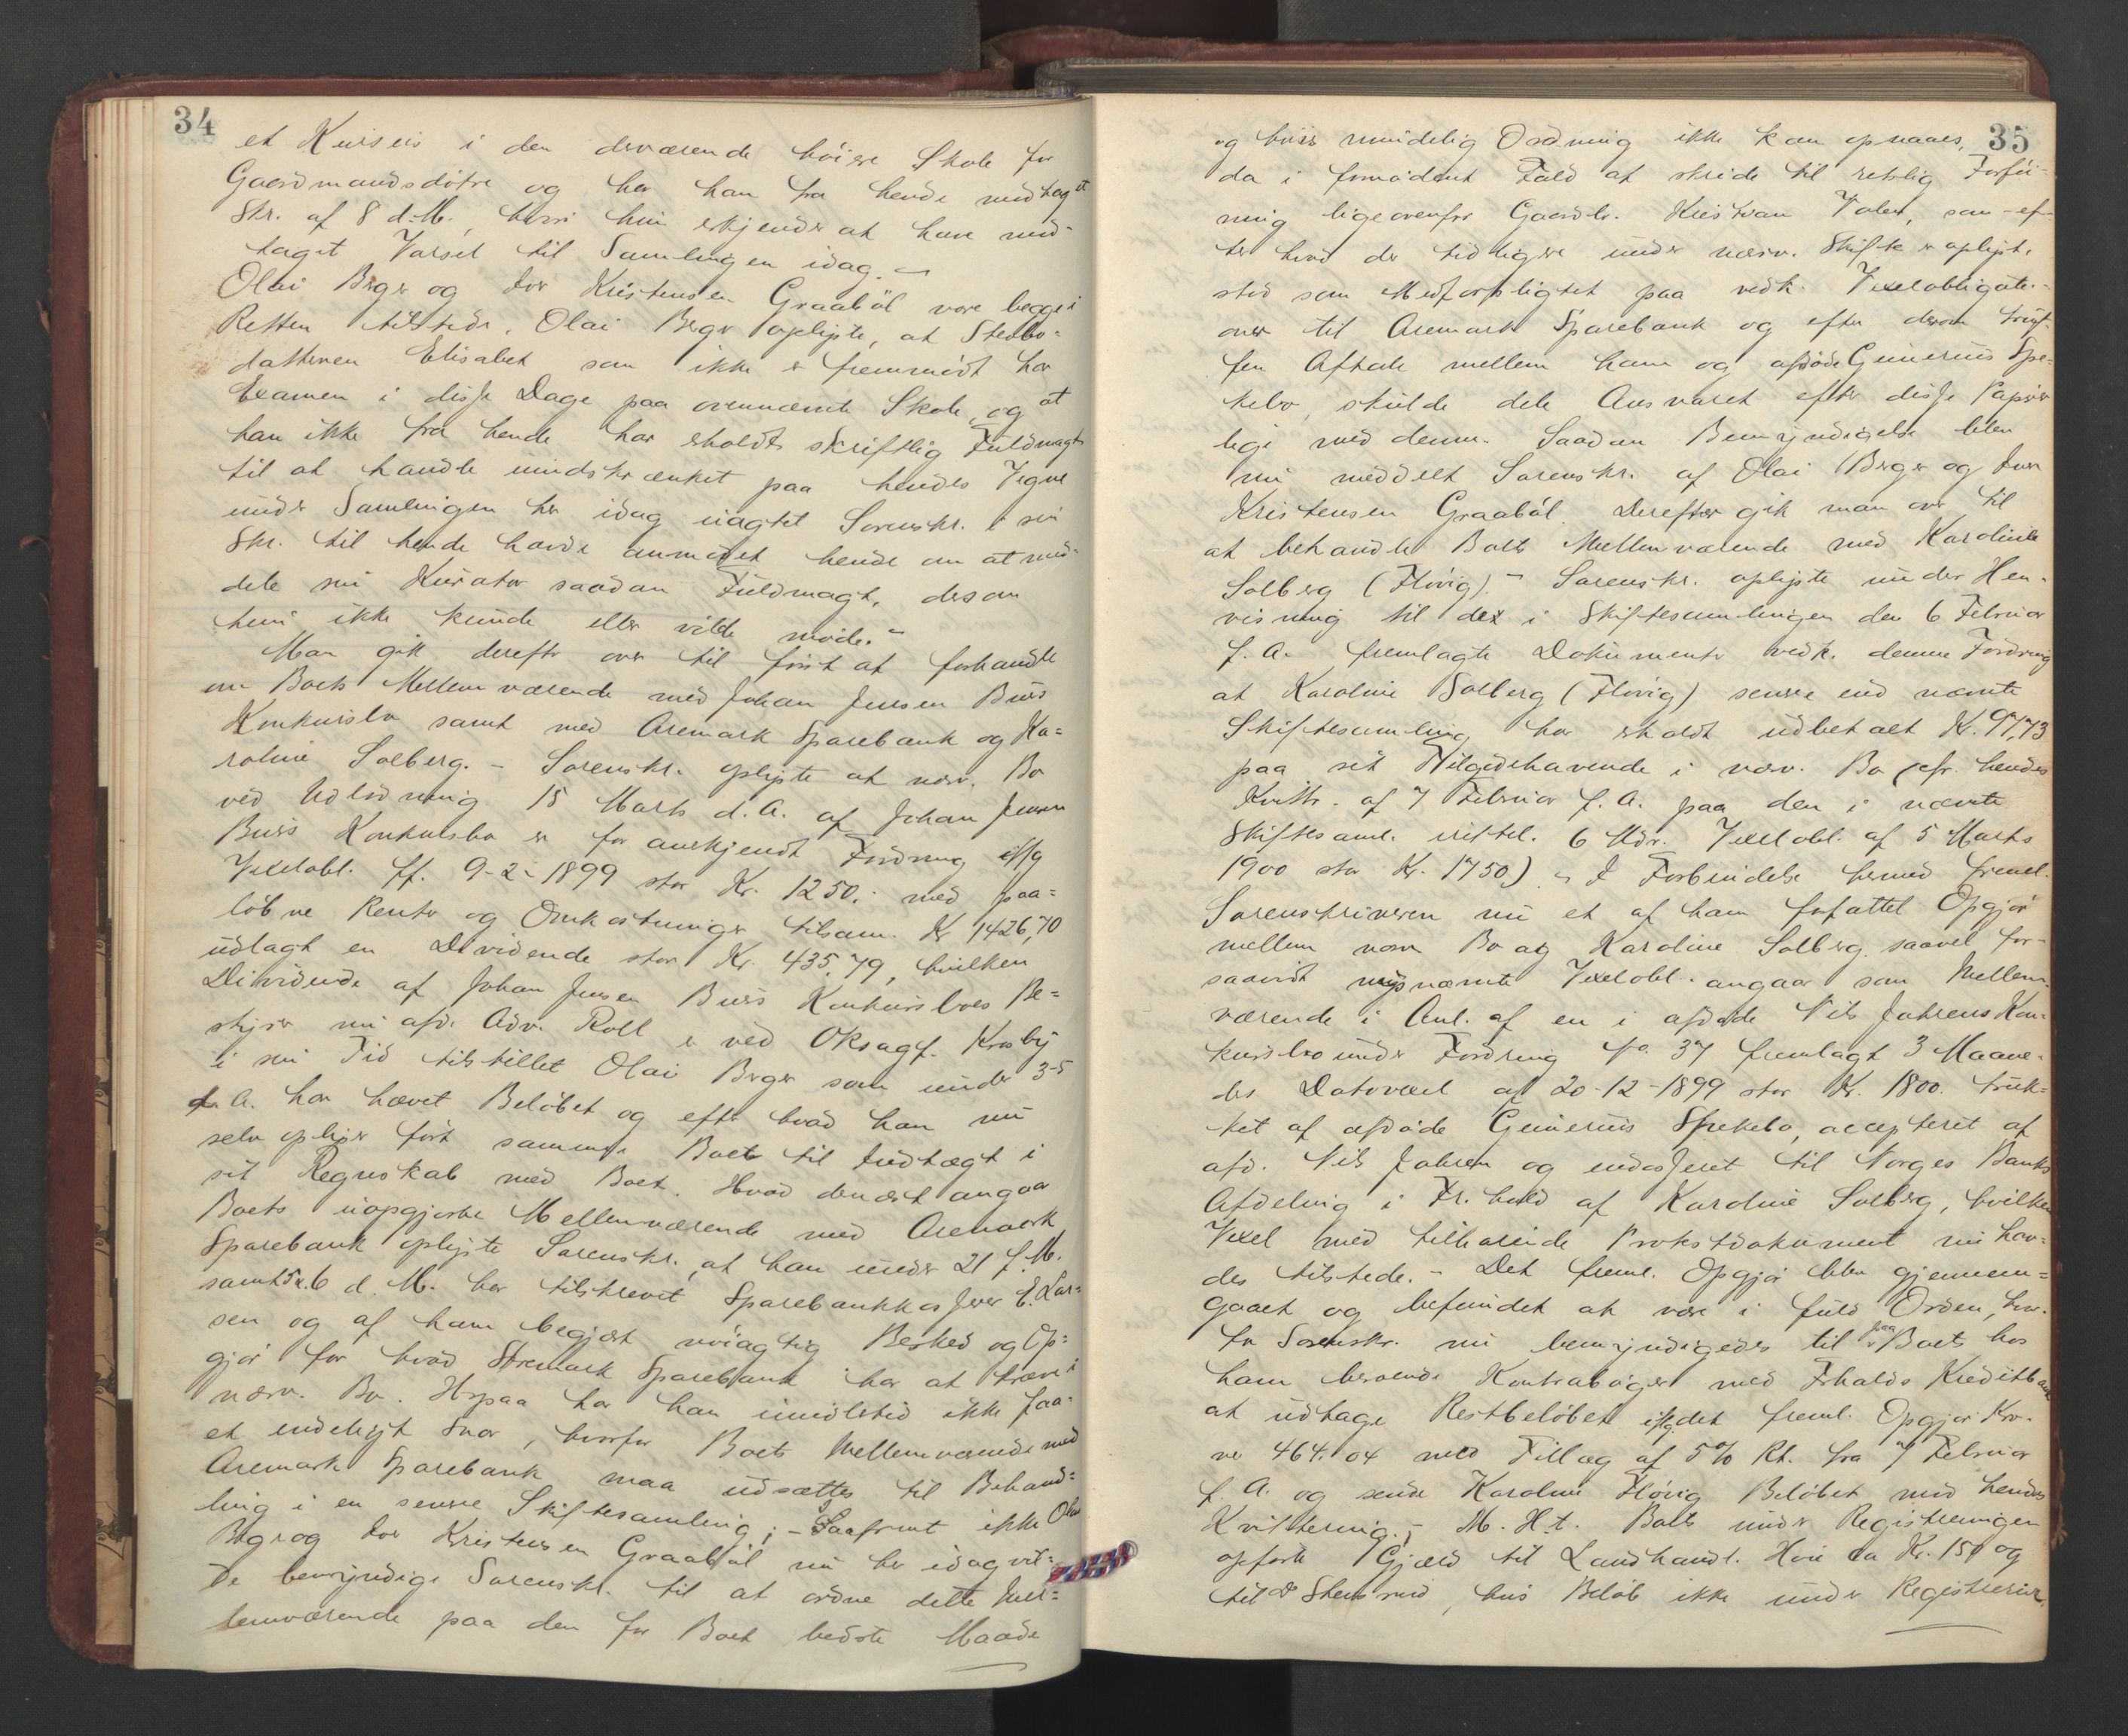 34
et Kursus i den derværende høiere Skole for
Gaardmandsdøtre og har han fra hende modtaget
Skr. af 8 d.M., hvori hun erkjender at have mod-
taget Varsel til Samlingen idag. –
Olai Berger og Iver Kristensen Graabøl vare begge i
Retten tilstede. Olai Berger oplyste, at Stedbo-
datteren Elisabet som ikke er fremmødt har
Examen i disse Dage paa ovennævnte Skole, og at
han ikke fra hende har erholdt skriftlig Fuldmagt
til at handle uindskrænket paa hendes Vegne
under Samlingen her idag uagtet Sorenskr. i sin
Skr. til hende havde anmodet hende om at med-
dele sin Kurator saadan Fuldmagt, dersom
hun ikke kunde eller vilde møde. –
Man gik derefter over til først at forhandle
om Boets Mellemværende med Johan Jensen Buers
Konkursbo samt med Aremark Sparebank og Ka=
roline Solberg. – Sorenskr. oplyste at nærv. Bo
ved Udlodning 15 Marts d.A. af Johan Jensen
Buers Konkursbo er for anerkjendt Fordring iflg
Vexelobl. ff. 9-2-1899 stor Kr. 1250. med paa=
løbne Renter og Omkostninger tilsam. Kr 1426,70
udlagt en Dividende stor Kr. 435,79, hvilken
Dividende af Johan Jensen Buers Konkursboes Be=
styrer nu afd. Adv. Roll er ved Oksagf. Krosby
i sin Tid tilstillet Olai Berger som under 3-5
d.A. har hævet Beløbet og efter hvad han nu
selv oplyser ført samme Boet til Indtægt i
sit Regnskab med Boet. Hvad dernæst angaar
Boets uopgjorte Mellemværende med Aremark
Sparebank oplyste Sorenskr., at han under 21 f.M.
samt 5 & 6 d.M. har tilskrevet Sparebankkasserer E. Lar=
sen og af ham begjært nøiagtig Besked og Op=
gjør for hvad Aremark Sparebank har at kræve i
nærv. Bo. Herpaa har han imidlertid ikke faa-
et endeligt Svar, hvorfor Boets Mellemværende med
Aremark Sparebank maa udsættes til Behand=
ling i en senere Skiftesamling; – Saafremt ikke Olai
Berger og Iver Kristensen Graabøl nu her idag vil=
de bemyndige Sorenskr. til at ordne dette Mel=
lemværende paa den for Boet bedste Maade
35
og hvis mindelig Ordning ikke kan opnaaes,
da i fornødent Fald at skride til retslig Forføi-
ning ligeoverfor Gaardbr. Kristian Volen, som – ef-
ter hvad der tidligere under nærv. Skifte er oplyst,
stod som Medforpligtet paa vedk. Vexelobligati-
oner til Aremark Sparebank og efter derom truf-
fen Aftale mellem ham og afdøde Gunerius Spe=
kebo, skulde dele Ansvaret efter disse Papirer
lige med denne. Saadan Bemyndigelse blev
nu meddelt Sorenskr. af Olai Berger og Iver
Kristensen Graabøl. Derefter gik man over til
at behandle Boets Mellemværende med Karoline
Solberg (Fløvig). – Sorenskr. oplyste under Hen-
visning til det i Skiftesamlingen den 6 Februar
f.A. fremlagte Dokumenter vedk. denne Fordring
at Karoline Solberg (Fløvig) senere end nævnte
Skiftesamling har erholdt udbetalt Kr. 97,73
paa sit Tilgodehavende i nærv. Bo (cfr. hendes
Kvittr. af 7 Februar f.A. paa den i nævnte
Skiftesaml. 6 Mdr. Vexelobl. af 5 Marts
1900 stor Kr. 1750). – I Forbindelse hermed freml.
Sorenskriveren nu et af ham forfattet Opgjør
mellem nærv. Bo og Karoline Solberg, saavel for-
saavidt nysnævnte Vexelobl. angaar som Mellem-
værende i Anl. af en i afdøde Nils Jahrens Kon-
kursbo under Fordring No. 37 fremlagt 3 Maane-
ders Datovexel af 20-12-1899 stor Kr. 1800. truk=
ket af afdøde Gunerius Spekebo, accepteret af
afd. Nils Jahren og endosseret til Norges Banks
Afdeling i Fr.hald af Karoline Solberg, hvilken
Vexel med tilhørende Protestdokument nu hav=
des tilstede. – Det freml. Opgjør blev gjennem=
gaaet og befundet at være i fuld Orden, hvor-
for Sorenskr. nu bemyndigedes til paa Boets hos
ham beroende Kontrabøger med F.halds Kreditbank
at udtage Restbeløbet iflg. det freml. Opgjør Kro-
ner 464.04 med Tillæg af 5% Rt. fra 7 Februar
f.A. og sende Karoline Fløvig Beløbet mod hendes
Kvittering. – M.H.t. Boets under Registreringen
opførte Gjæld til Landhandl. Kr. 151 og
til do Stensrud, hvis Beløb ikke under Registrerin